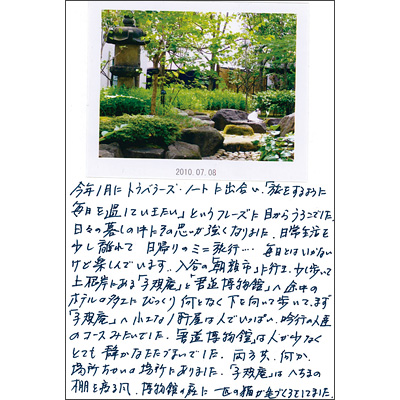 2010.07.08
今年1月にトラベラーズ・ノートに出合い、「旅をするように
毎日を過していきたい」というフレーズに目からうろこでした。
日々の暮しの中にその思いが強くなりました。日常生活を
少し離れて 日帰りのミニ旅行…… 毎日とはいかない
けど楽しんでいます。入谷の「朝顔市」に行き、少し歩いて
上根岸にある「子規庵」と「書道博物館」へ 途中の
ホテルの多さに びっくり 何となく下を向いて歩いて、まず
「子規庵」へ 小さな1軒屋は人でいっぱい、吟行の人達
のコースみたいでした。「書道博物館」は人が少なく
とても 静かなたたずまいでした。両方共、何か、
場所ちがいの場所にありました。「子規庵」はへちまの
棚を通る風、博物館の庭に 一匹の猫が